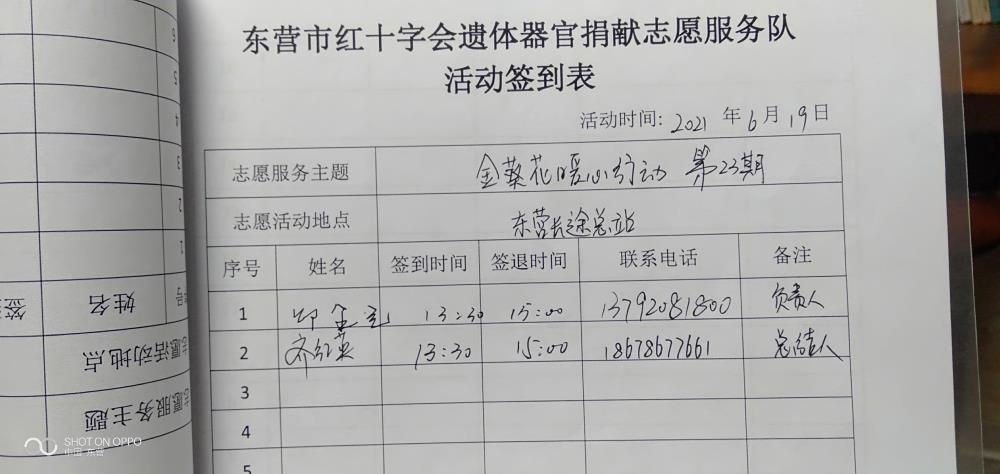 东营市红十字会遗体器官捐献志愿服务队
活动签到表
活动时间: 2021 年 6 月 19 日
志愿服务主题 金葵花暖心行动 第23期
志愿活动地点 东营长途总站
序号 姓名 签到时间 签退时间 联系电话 备注
1 13:30 15:00 13792081800 负责人
2 齐红英 13:30 15:00 18678677661 总结人
3
4
5
6
5
4
3
2
1
姓名
志愿活动地点
志愿服务主题
SHOT ON OPPO
中国·东营